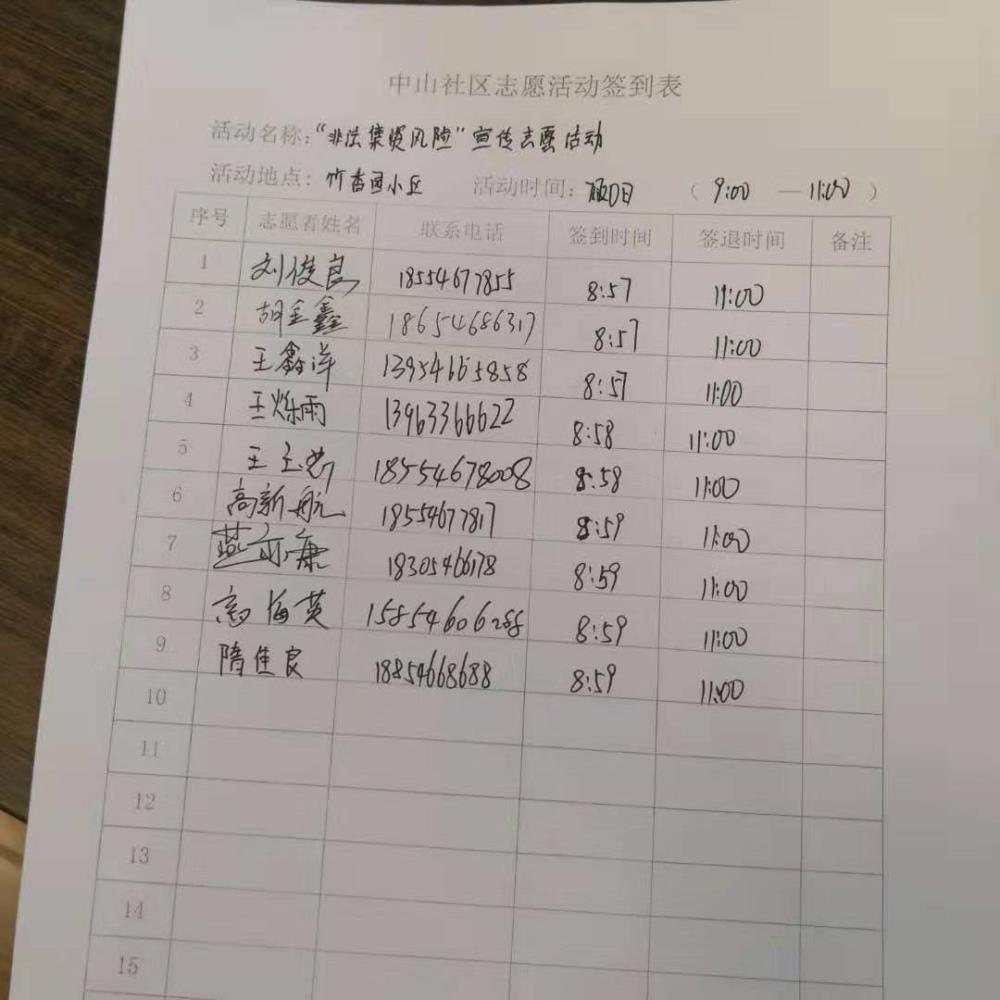 中山社区志愿活动签到表
活动名称：“非法集资风险”宣传志愿活动
活动地点：竹香园小区 活动时间： （9:00 — 11:00）
序号 志愿者姓名 联系电话 签到时间 签退时间 备注
1 刘俊良 18554677855 8:57 11:00
2 胡金鑫 18654686317 8:57 11:00
3 王鑫洋 13954665858 8:57 11:00
4 王烁雨 13963366622 8:58 11:00
5 王 18554678008 8:58 11:00
6 高新航 18554677817 8:59 11:00
7 燕 康 18305466178 8:59 11:00
8 高海英 15854606288 8:59 11:00
9 隋佳良 18854668688 8:59 11:00
10
11
12
13
14
15